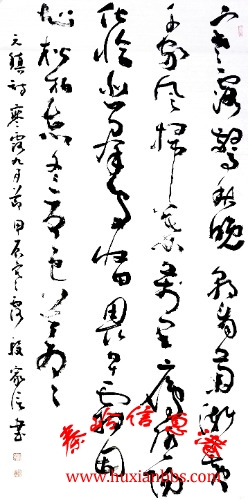 寒露驚秋晚朝看菊漸黃
千家風掃葉萬里雁隨陽
化蛤悲群鳥收田畏早霜因
知松柏志冬夏色蒼蒼
元稹詩寒露九月節甲辰寒露家信書
www.huxianbbs.com